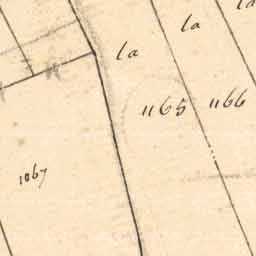 la
la
la
1165
1166
1067